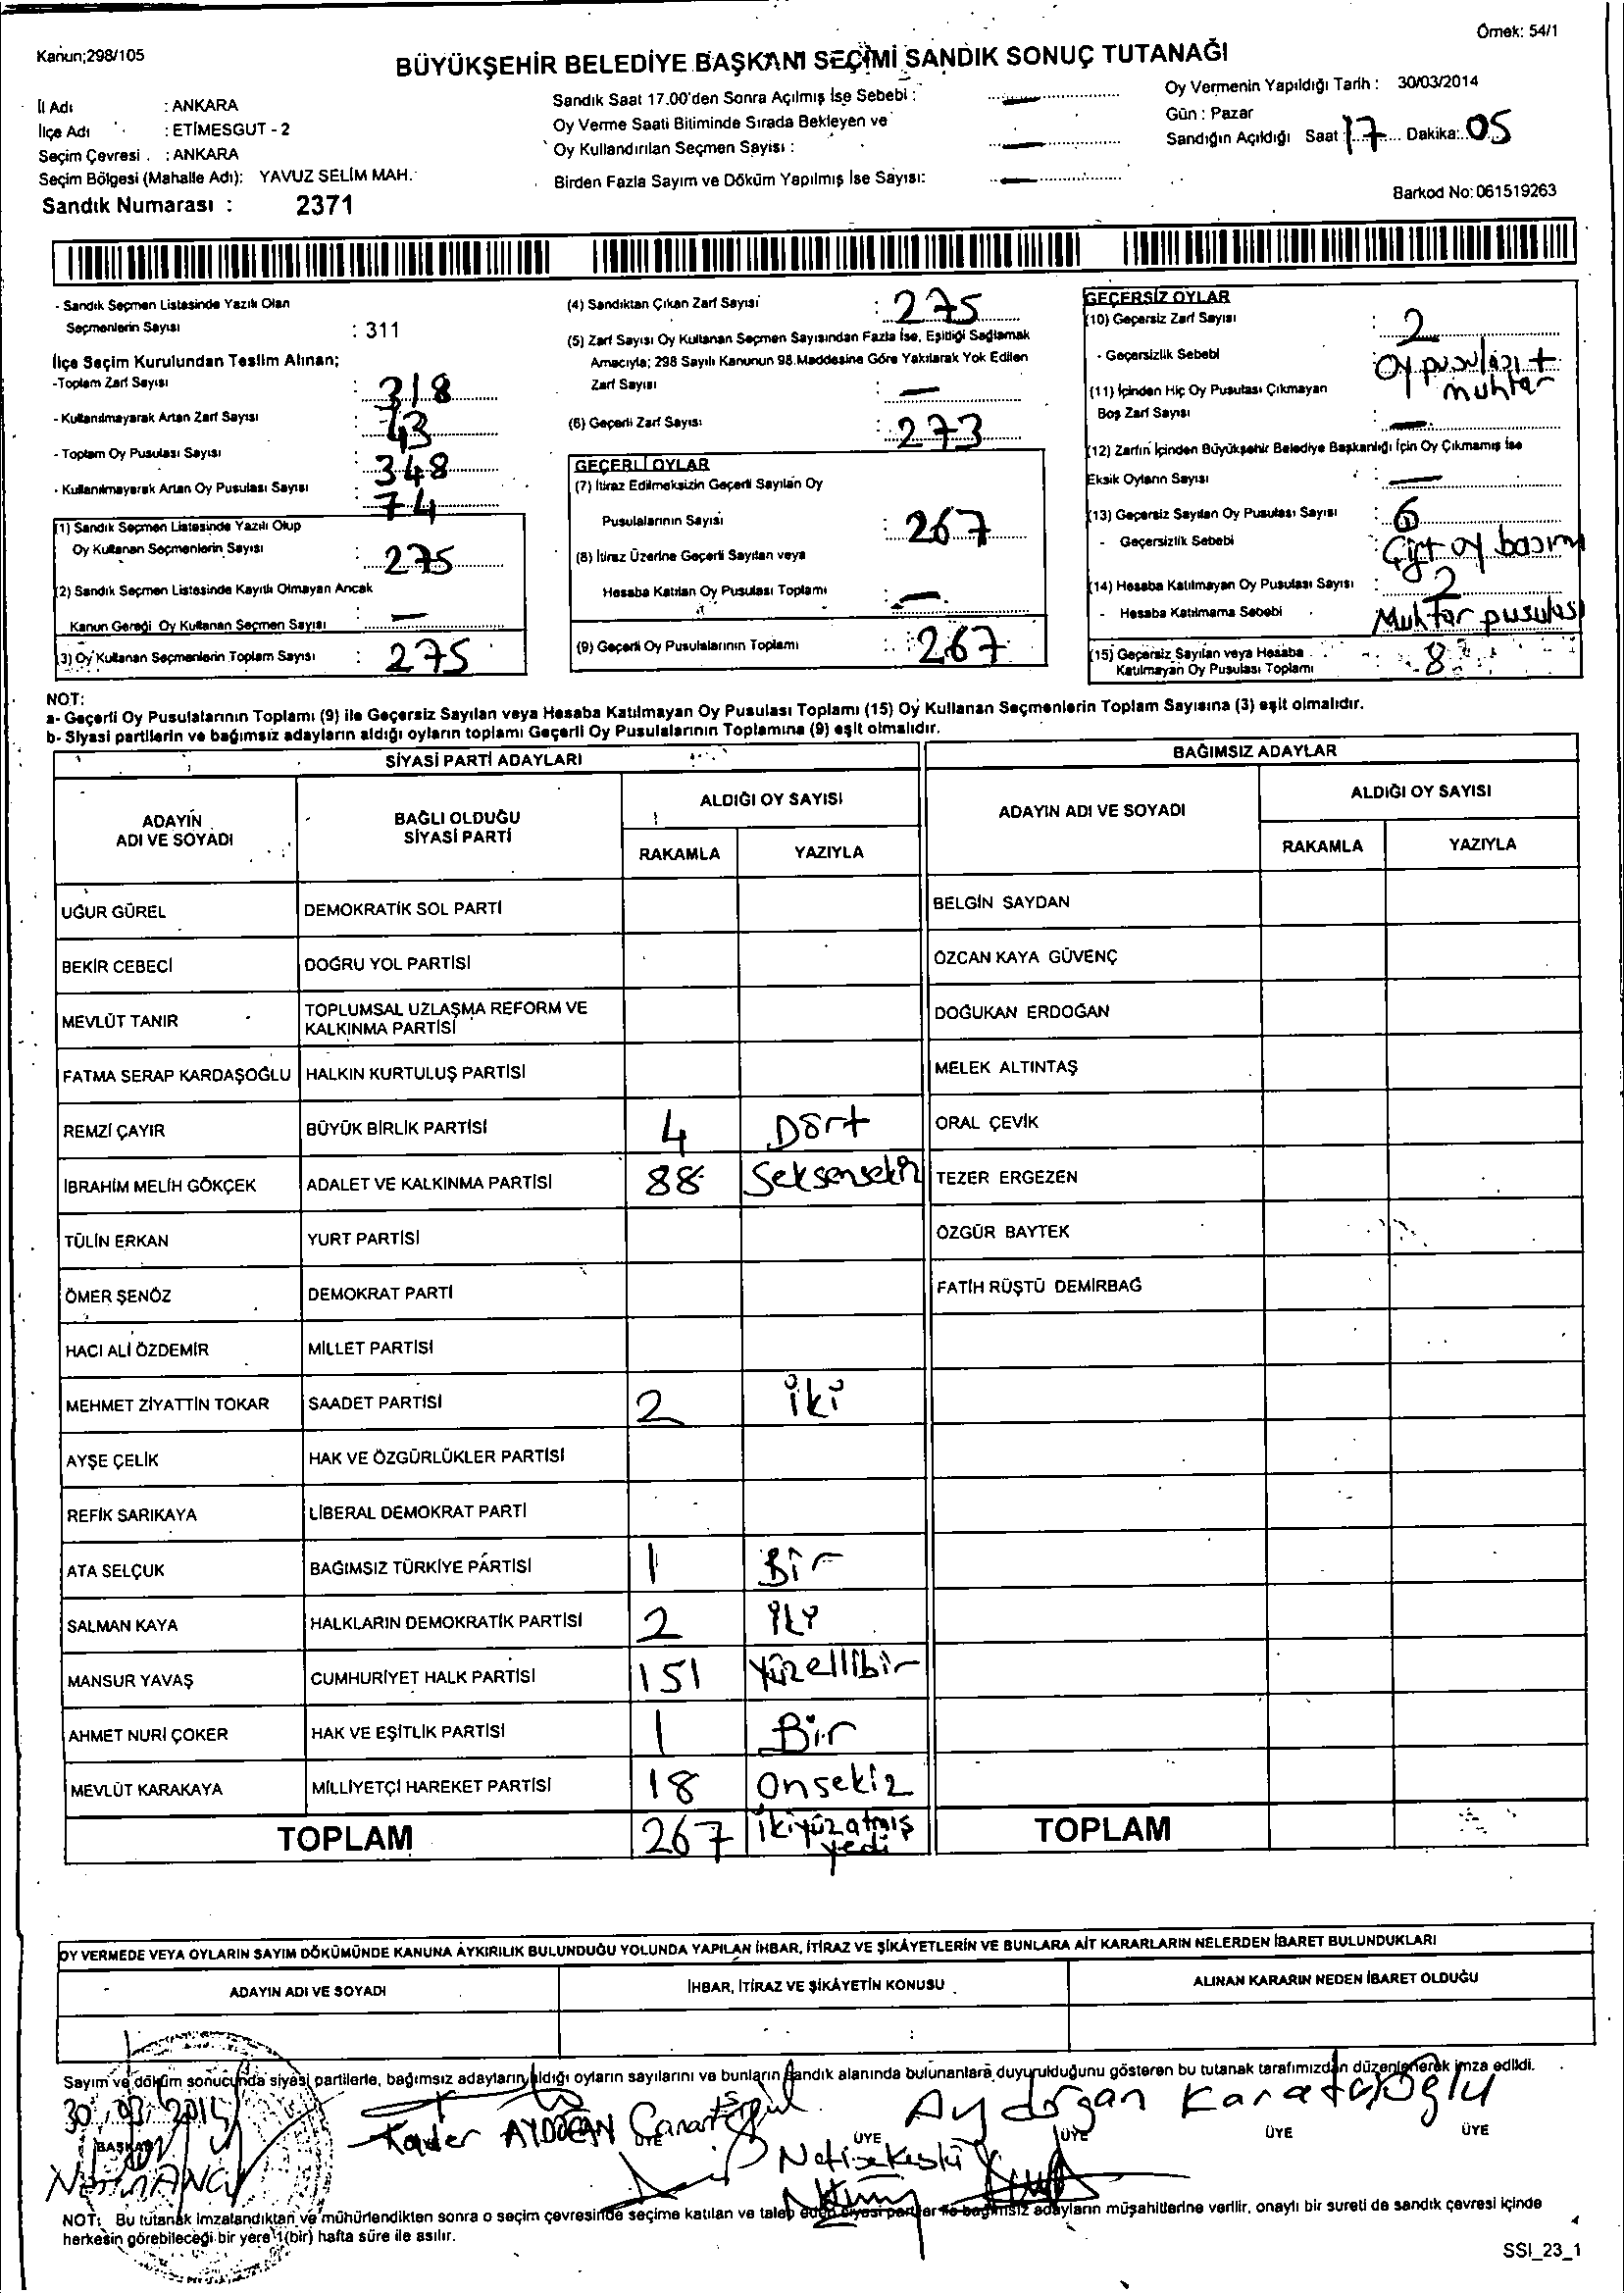 Örnek: 54/1
Kanun;298/105
BÜYÜKŞEHİR BELEDİYE BAŞKANI SEÇİMİ SANDIK SONUÇ TUTANAĞI
İl Adı : ANKARA
İlçe Adı : ETİMESGUT - 2
Seçim Çevresi : ANKARA
Seçim Bölgesi (Mahalle Adı): YAVUZ SELİM MAH.
Sandık Numarası : 2371
Sandık Saat 17.00'den Sonra Açılmış İse Sebebi : —
Oy Verme Saati Bitiminde Sırada Bekleyen ve
Oy Kullandırılan Seçmen Sayısı : —
Birden Fazla Sayım ve Döküm Yapılmış İse Sayısı: —
Oy Vermenin Yapıldığı Tarih : 30/03/2014
Gün : Pazar
Sandığın Açıldığı Saat : 17 Dakika: 05
Barkod No: 061519263
- Sandık Seçmen Listesinde Yazılı Olan
Seçmenlerin Sayısı : 311
İlçe Seçim Kurulundan Teslim Alınan;
-Toplam Zarf Sayısı : 318
- Kullanılmayarak Artan Zarf Sayısı : 43
- Toplam Oy Pusulası Sayısı : 348
- Kullanılmayarak Artan Oy Pusulası Sayısı : 74
(1) Sandık Seçmen Listesinde Yazılı Olup
Oy Kullanan Seçmenlerin Sayısı : 275
(2) Sandık Seçmen Listesinde Kayıtlı Olmayan Ancak
Kanun Gereği Oy Kullanan Seçmen Sayısı : —
(3) Oy Kullanan Seçmenlerin Toplam Sayısı : 275
(4) Sandıktan Çıkan Zarf Sayısı : 275
(5) Zarf Sayısı Oy Kullanan Seçmen Sayısından Fazla İse, Eşitliği Sağlamak
Amacıyla; 298 Sayılı Kanunun 98.Maddesine Göre Yakılarak Yok Edilen
Zarf Sayısı : —
(6) Geçerli Zarf Sayısı : 273
GEÇERLİ OYLAR
(7) İtiraz Edilmeksizin Geçerli Sayılan Oy
Pusulalarının Sayısı : 267
(8) İtiraz Üzerine Geçerli Sayılan veya
Hesaba Katılan Oy Pusulası Toplamı : —
(9) Geçerli Oy Pusulalarının Toplamı : 267
GEÇERSİZ OYLAR
(10) Geçersiz Zarf Sayısı : 2
- Geçersizlik Sebebi : Oy pusulası +
muhtar
(11) İçinden Hiç Oy Pusulası Çıkmayan
Boş Zarf Sayısı : —
(12) Zarfın İçinden Büyükşehir Belediye Başkanlığı İçin Oy Çıkmamış İse
Eksik Oyların Sayısı : —
(13) Geçersiz Sayılan Oy Pusulası Sayısı : 6
- Geçersizlik Sebebi : Çift oy basımı
(14) Hesaba Katılmayan Oy Pusulası Sayısı : 2
- Hesaba Katılmama Sebebi : Muhtar pusulası
(15) Geçersiz Sayılan veya Hesaba
Katılmayan Oy Pusulası Toplamı : 8
NOT:
a- Geçerli Oy Pusulalarının Toplamı (9) ile Geçersiz Sayılan veya Hesaba Katılmayan Oy Pusulası Toplamı (15) Oy Kullanan Seçmenlerin Toplam Sayısına (3) eşit olmalıdır.
b- Siyasi partilerin ve bağımsız adayların aldığı oyların toplamı Geçerli Oy Pusulalarının Toplamına (9) eşit olmalıdır.
SİYASİ PARTİ ADAYLARI BAĞIMSIZ ADAYLAR
ADAYIN ADI VE SOYADI BAĞLI OLDUĞU SİYASİ PARTİ ALDIĞI OY SAYISI ADAYIN ADI VE SOYADI ALDIĞI OY SAYISI
RAKAMLA YAZIYLA RAKAMLA YAZIYLA
UĞUR GÜREL DEMOKRATİK SOL PARTİ BELGİN SAYDAN
BEKİR CEBECİ DOĞRU YOL PARTİSİ ÖZCAN KAYA GÜVENÇ
MEVLÜT TANIR TOPLUMSAL UZLAŞMA REFORM VE KALKINMA PARTİSİ DOĞUKAN ERDOĞAN
FATMA SERAP KARDAŞOĞLU HALKIN KURTULUŞ PARTİSİ MELEK ALTINTAŞ
REMZİ ÇAYIR BÜYÜK BİRLİK PARTİSİ 4 Dört ORAL ÇEVİK
İBRAHİM MELİH GÖKÇEK ADALET VE KALKINMA PARTİSİ 88 Seksensekiz TEZER ERGEZEN
TÜLİN ERKAN YURT PARTİSİ ÖZGÜR BAYTEK
ÖMER ŞENÖZ DEMOKRAT PARTİ FATİH RÜŞTÜ DEMİRBAĞ
HACI ALİ ÖZDEMİR MİLLET PARTİSİ
MEHMET ZİYATTİN TOKAR SAADET PARTİSİ 2 iki
AYŞE ÇELİK HAK VE ÖZGÜRLÜKLER PARTİSİ
REFİK SARIKAYA LİBERAL DEMOKRAT PARTİ
ATA SELÇUK BAĞIMSIZ TÜRKİYE PARTİSİ 1 Bir
SALMAN KAYA HALKLARIN DEMOKRATİK PARTİSİ 2 iki
MANSUR YAVAŞ CUMHURİYET HALK PARTİSİ 151 Yüzellibir
AHMET NURİ ÇOKER HAK VE EŞİTLİK PARTİSİ 1 Bir
MEVLÜT KARAKAYA MİLLİYETÇİ HAREKET PARTİSİ 18 Onsekiz
TOPLAM 267 ikiyüzatmış yedi TOPLAM
OY VERMEDE VEYA OYLARIN SAYIM DÖKÜMÜNDE KANUNA AYKIRILIK BULUNDUĞU YOLUNDA YAPILAN İHBAR, İTİRAZ VE ŞİKÂYETLERİN VE BUNLARA AİT KARARLARIN NELERDEN İBARET BULUNDUKLARI
ADAYIN ADI VE SOYADI İHBAR, İTİRAZ VE ŞİKÂYETİN KONUSU ALINAN KARARIN NEDEN İBARET OLDUĞU
Sayım ve döküm sonucunda siyasi partilerle, bağımsız adayların aldığı oyların sayılarını ve bunların sandık alanında bulunanlara duyurulduğunu gösteren bu tutanak tarafımızdan düzenlenerek imza edildi.
30/03/2014
Kader AYDOĞAN
Aydoğan
BAŞKAN ÜYE ÜYE ÜYE ÜYE ÜYE
NOT: Bu tutanak imzalandıktan ve mühürlendikten sonra o seçim çevresinde seçime katılan ve talep eden siyasi partiler ile bağımsız adayların müşahitlerine verilir, onaylı bir sureti de sandık çevresi içinde
herkesin görebileceği bir yere 1(bir) hafta süre ile asılır.
SSI_23_1